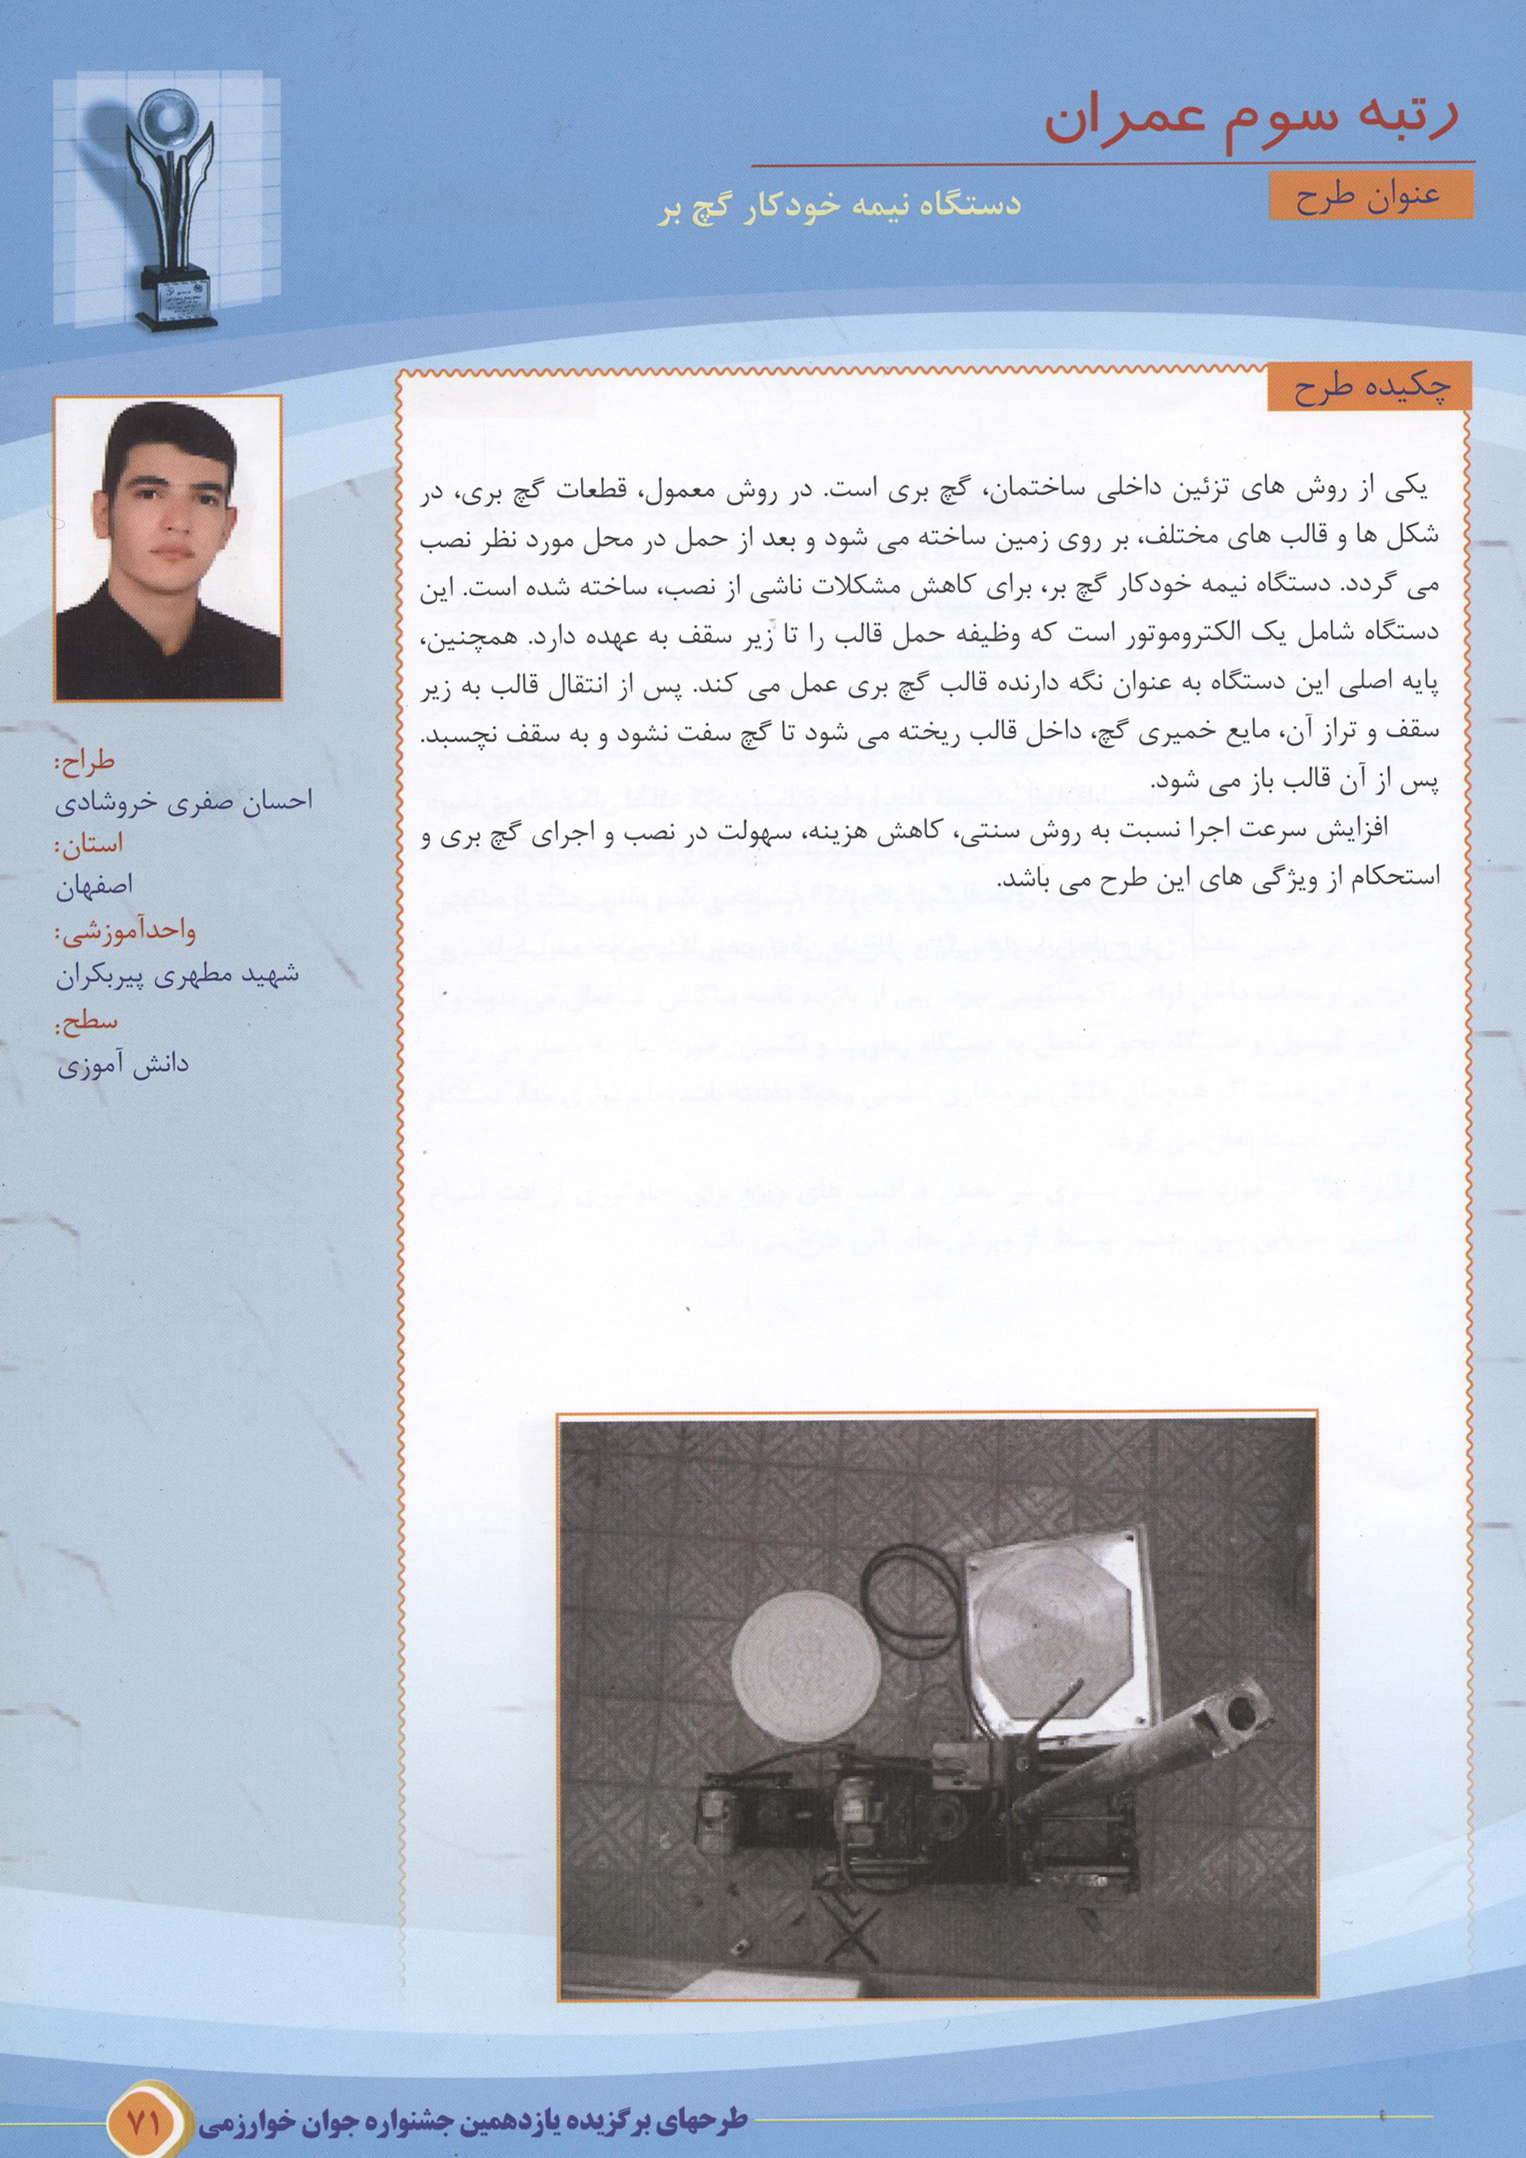 رتبه سوم عمران
عنوان طرح
دستگاه نیمه خودکار گچ بر
چکیده طرح
یکی از روش های تزئین داخلی ساختمان، گچ بری است. در روش معمول، قطعات گچ بری، در
شکل ها و قالب های مختلف، بر روی زمین ساخته می شود و بعد از حمل در محل مورد نظر نصب
می گردد. دستگاه نیمه خودکار گچ بر، برای کاهش مشکلات ناشی از نصب، ساخته شده است. این
دستگاه شامل یک الکتروموتور است که وظیفه حمل قالب را تا زیر سقف به عهده دارد. همچنین،
پایه اصلی این دستگاه به عنوان نگه دارنده قالب گچ بری عمل می کند. پس از انتقال قالب به زیر
سقف و تراز آن، مایع خمیری گچ، داخل قالب ریخته می شود تا گچ سفت نشود و به سقف نچسبد.
پس از آن قالب باز می شود.
افزایش سرعت اجرا نسبت به روش سنتی، کاهش هزینه، سهولت در نصب و اجرای گچ بری و
استحکام از ویژگی های این طرح می باشد.
طراح:
احسان صفری خروشادی
استان:
اصفهان
واحدآموزشی:
شهید مطهری پیربکران
سطح:
دانش آموزی
طرحهای برگزیده یازدهمین جشنواره جوان خوارزمی
۷۱